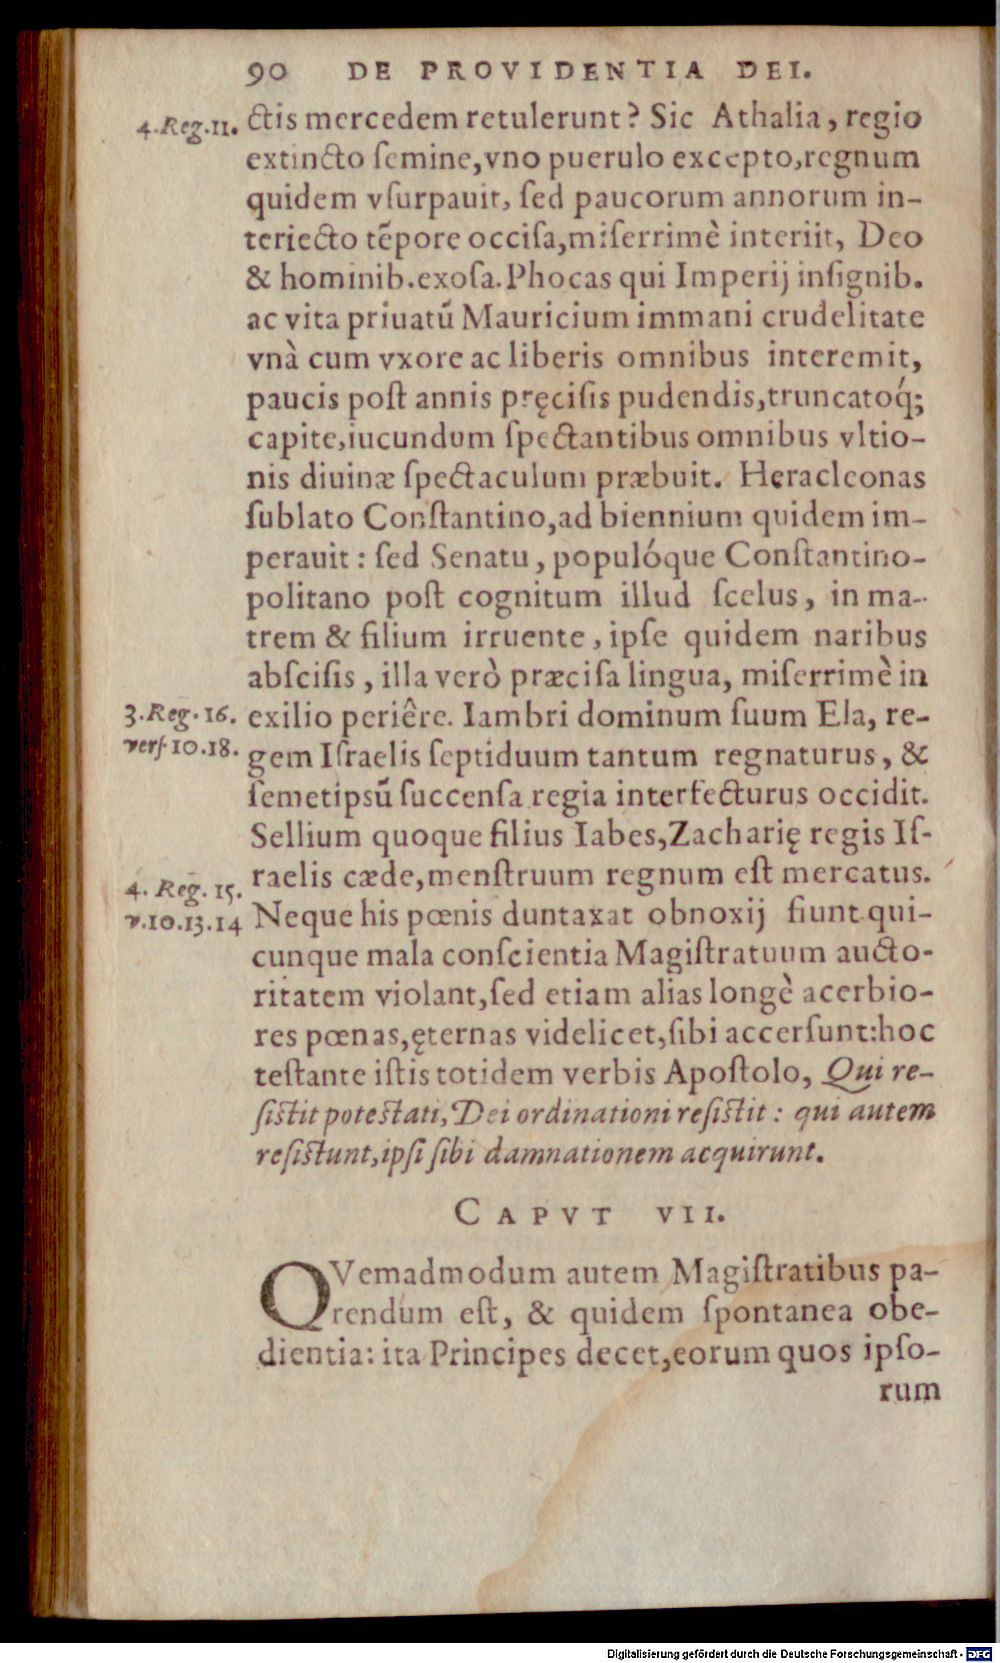 90 DE PROVIDENTIA DEI.
4.Reg.11. ctis mercedem retulerunt? Sic Athalia, regio
extincto ſemine,vno puerulo excepto,regnum
quidem vſurpauit, ſed paucorum annorum in-
teriecto tẽpore occiſa,miſerrimè interiit, Deo
& hominib.exoſa.Phocas qui Imperij inſignib.
ac vita priuatũ Mauricium immani crudelitate
vnà cum vxore ac liberis omnibus interemit,
paucis poſt annis pręciſis pudendis,truncatoq́;
capite,iucundum ſpectantibus omnibus vltio-
nis diuinæ ſpectaculum præbuit. Heracleonas
ſublato Conſtantino,ad biennium quidem im-
perauit: ſed Senatu, populóque Conſtantino-
politano poſt cognitum illud ſcelus, in ma-
trem & filium irruente, ipſe quidem naribus
abſciſis, illa verò præciſa lingua, miſerrimè in
3.Reg.16. exilio periêre. Iambri dominum ſuum Ela, re-
verſ.10.18. gem Iſraelis ſeptiduum tantum regnaturus, &
ſemetipsũ ſuccenſa regia interfecturus occidit.
Sellium quoque filius Iabes,Zacharię regis Iſ-
4. Reg. 15. raelis cæde,menſtruum regnum eſt mercatus.
v.10.13.14 Neque his pœnis duntaxat obnoxij fiunt qui-
cunque mala conſcientia Magiſtratuum aucto-
ritatem violant,ſed etiam alias longè acerbio-
res pœnas,ęternas videlicet,ſibi accerſunt:hoc
teſtante iſtis totidem verbis Apoſtolo, Qui re-
ſiſtit poteſtati, Dei ordinationi reſiſtit: qui autem
reſiſtunt,ipſi ſibi damnationem acquirunt.
CAPVT VII.
QVemadmodum autem Magiſtratibus pa-
rendum eſt, & quidem ſpontanea obe-
dientia: ita Principes decet,eorum quos ipſo-
rum
Digitalisierung gefördert durch die Deutsche Forschungsgemeinschaft - DFG